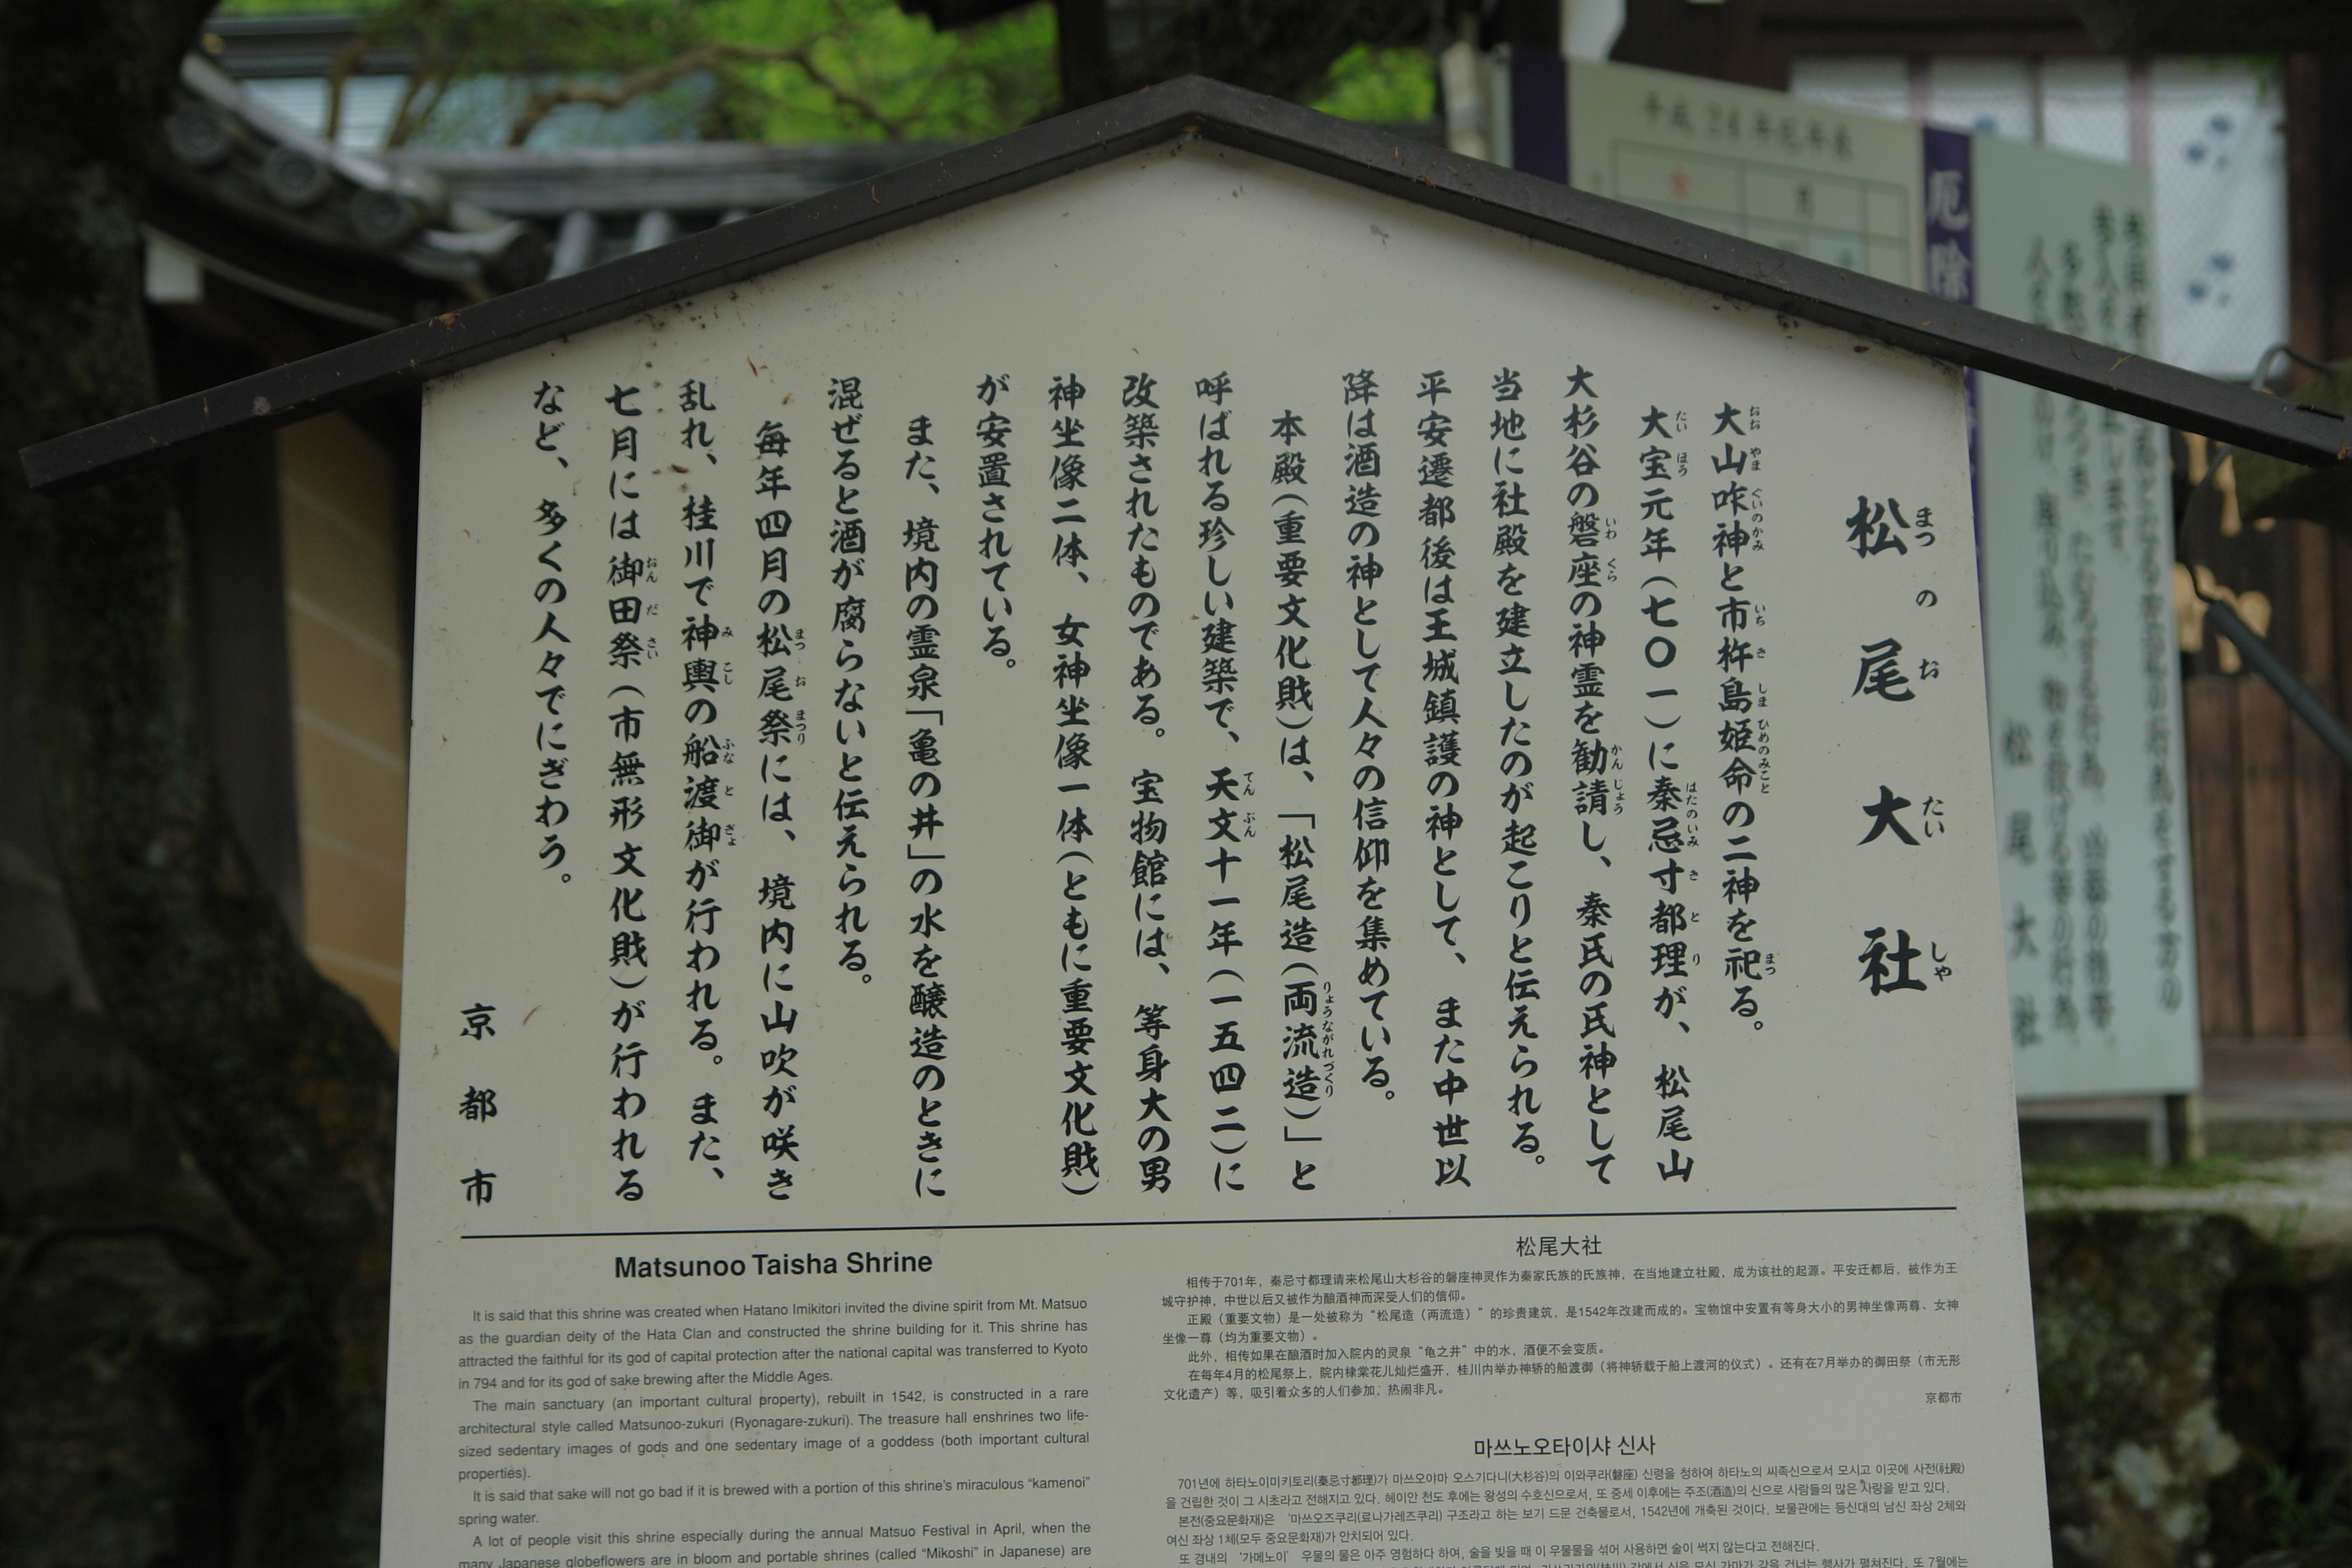 松尾大社
大山咋神と市杵島姫命の二神を祀る。
大宝元年(七〇一)に秦忌寸都理が、松尾山
大杉谷の磐座の神霊を勧請し、秦氏の氏神として
当地に社殿を建立したのが起こりと伝えられる。
平安遷都後は王城鎮護の神として、また中世以
降は酒造の神として人々の信仰を集めている。
本殿(重要文化財)は、「松尾造(両流造)」と
呼ばれる珍しい建築で、天文十一年(一五四二)に
改築されたものである。宝物館には、等身大の男
神坐像二体、女神坐像一体(ともに重要文化財)
が安置されている。
また、境内の霊泉「亀の井」の水を醸造のときに
混ぜると酒が腐らないと伝えられる。
毎年四月の松尾祭には、境内に山吹が咲き
乱れ、桂川で神輿の船渡御が行われる。また、
七月には御田祭(市無形文化財)が行われる
など、多くの人々でにぎわう。
京都市
Matsunoo Taisha Shrine
It is said that this shrine was created when Hatano Imikitori invited the divine spirit from Mt. Matsuo
as the guardian deity of the Hata Clan and constructed the shrine building for it. This shrine has
attracted the faithful for its god of capital protection after the national capital was transferred to Kyoto
in 794 and for its god of sake brewing after the Middle Ages.
The main sanctuary (an important cultural property), rebuilt in 1542, is constructed in a rare
architectural style called Matsunoo-zukuri (Ryonagare-zukuri). The treasure hall enshrines two life-
sized sedentary images of gods and one sedentary image of a goddess (both important cultural
properties).
It is said that sake will not go bad if it is brewed with a portion of this shrine's miraculous “kamenoi”
spring water.
A lot of people visit this shrine especially during the annual Matsuo Festival in April, when the
many Japanese globeflowers are in bloom and portable shrines (called “Mikoshi” in Japanese) are
松尾大社
相传于701年，秦忌寸都理请来松尾山大杉谷的磐座神灵作为秦家氏族的氏族神，在当地建立社殿，成为该社的起源。平安迁都后，被作为王
城守护神，中世以后又被作为酿酒神而深受人们的信仰。
正殿（重要文物）是一处被称为“松尾造（两流造）”的珍贵建筑，是1542年改建而成的。宝物馆中安置有等身大小的男神坐像两尊、女神
坐像一尊（均为重要文物）。
此外，相传如果在酿酒时加入院内的灵泉“龟之井”中的水，酒便不会变质。
在每年4月的松尾祭上，院内棣棠花儿灿烂盛开，桂川内举办神轿的船渡御（将神轿载于船上渡河的仪式）。还有在7月举办的御田祭（市无形
文化遗产）等，吸引着众多的人们参加，热闹非凡。
京都市
마쓰노오타이샤 신사
701년에 하타노이미키토리(秦忌寸都理)가 마쓰오야마 오스기다니(大杉谷)의 이와쿠라(磐座) 신령을 청하여 하타노의 씨족신으로서 모시고 이곳에 사전(社殿)
을 건립한 것이 그 시초라고 전해지고 있다. 헤이안 천도 후에는 왕성의 수호신으로서, 또 중세 이후에는 주조(酒造)의 신으로 사람들의 많은 사랑을 받고 있다.
본전(중요문화재)은 ‘마쓰오즈쿠리(료나가레즈쿠리) 구조라고 하는 보기 드문 건축물로서, 1542년에 개축된 것이다. 보물관에는 등신대의 남신 좌상 2체와
여신 좌상 1체(모두 중요문화재)가 안치되어 있다.
또 경내의 ‘가메노이’ 우물의 물은 아주 영험하다 하여, 술을 빚을 때 이 우물물을 섞어 사용하면 술이 썩지 않는다고 전해진다.
平成24年厄年表
厄除
松尾大社